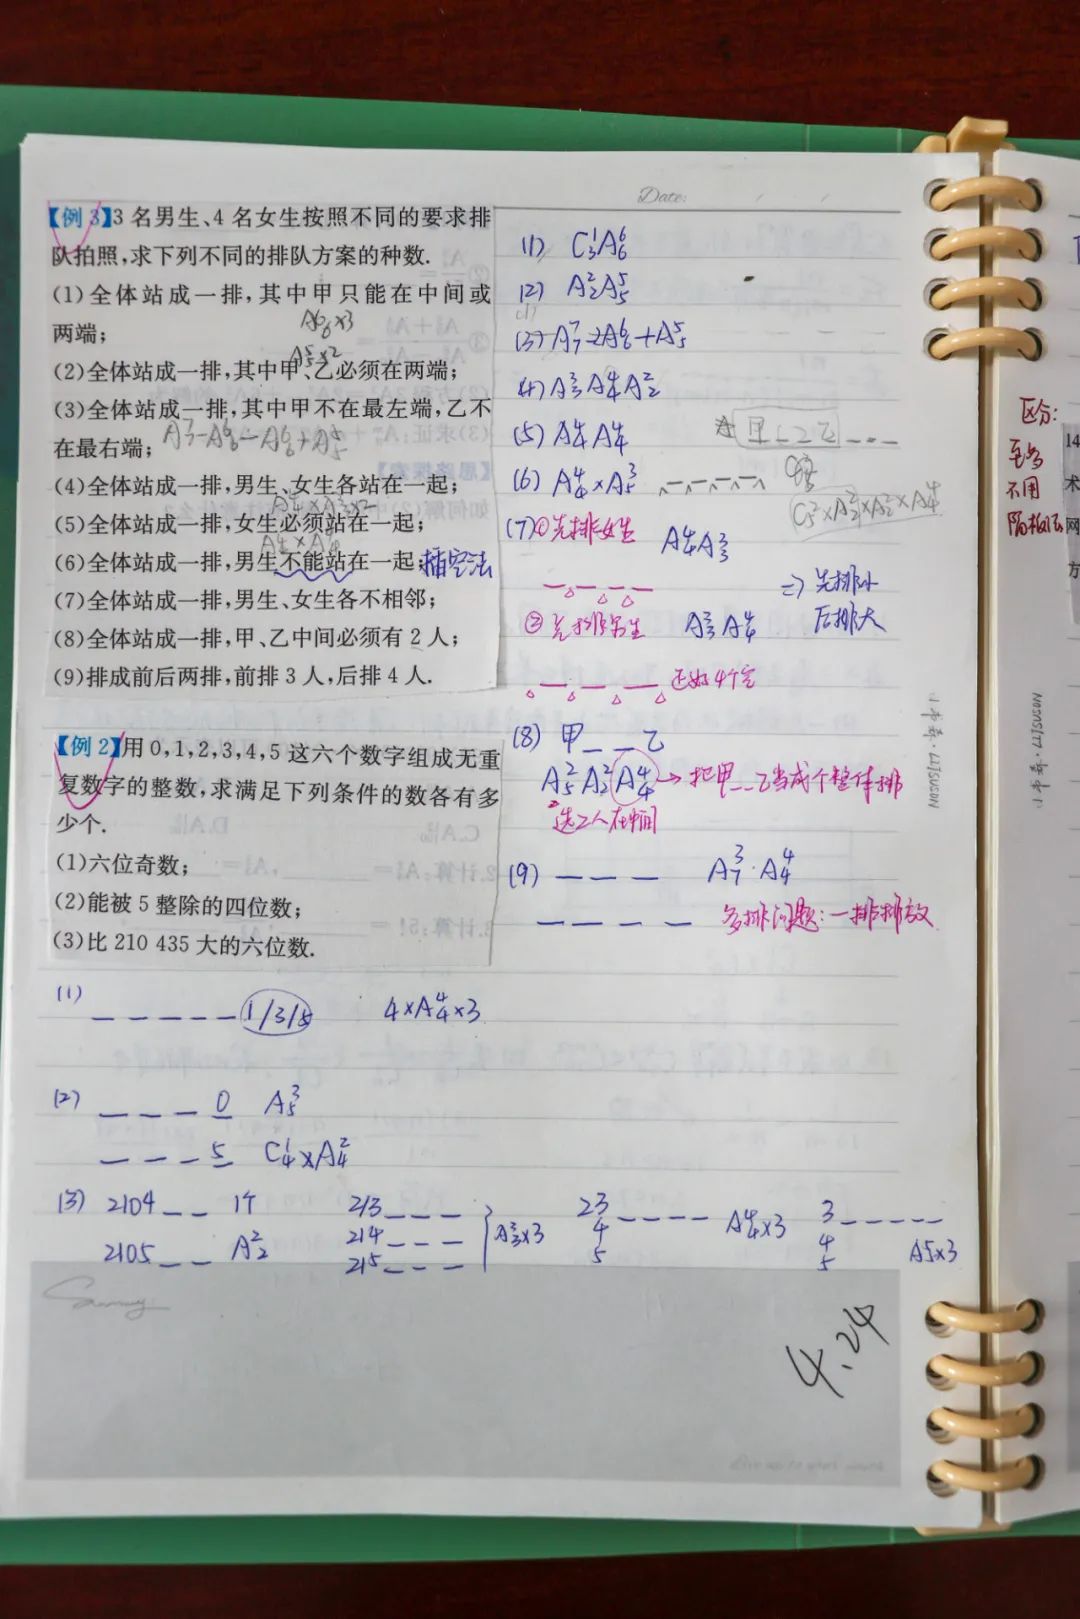 Date: / /
【例3】3名男生、4名女生按照不同的要求排
队拍照,求下列不同的排队方案的种数.
(1)全体站成一排,其中甲只能在中间或
两端;
A66×3
A55×2
(2)全体站成一排,其中甲、乙必须在两端;
(3)全体站成一排,其中甲不在最左端,乙不
在最右端;
A77-A66-A66+A55
(4)全体站成一排,男生、女生各站在一起;
(5)全体站成一排,女生必须站在一起;
A44×A44
(6)全体站成一排,男生不能站在一起;插空法
(7)全体站成一排,男生、女生各不相邻;
(8)全体站成一排,甲、乙中间必须有2人;
(9)排成前后两排,前排3人,后排4人.
(1) C31A66
(2) A22A55
(3) A77-2A66+A55
(4) A33A44A22
(5) A44A44
(6) A44×A53
C52×A22×A22×A44
(7)①先排女生 A44A33
⇒先排小
后排大
②先排男生 A33A44
还好4个空
(8) 甲__乙
A52A22A44→把甲__乙当成个整体排
选2人在中间
(9) ___ A73·A44
____ 多排问题:一排排放
【例2】用0,1,2,3,4,5这六个数字组成无重
复数字的整数,求满足下列条件的数各有多
少个.
(1)六位奇数;
(2)能被5整除的四位数;
(3)比210 435大的六位数.
(1) _____1/3/5 4×A44×3
(2) ___0 A53
___5 C41×A42
(3) 2104__ 1个 213___ 23 3_____
2105__ A22 214___ A33×3 4____ A44×3 4
215___ 5 5 A55×3
4.24
区分:
至多
不用
隔板法
14
术
网
方
小本森·LIJSUSON
小本森·LIJSUSON